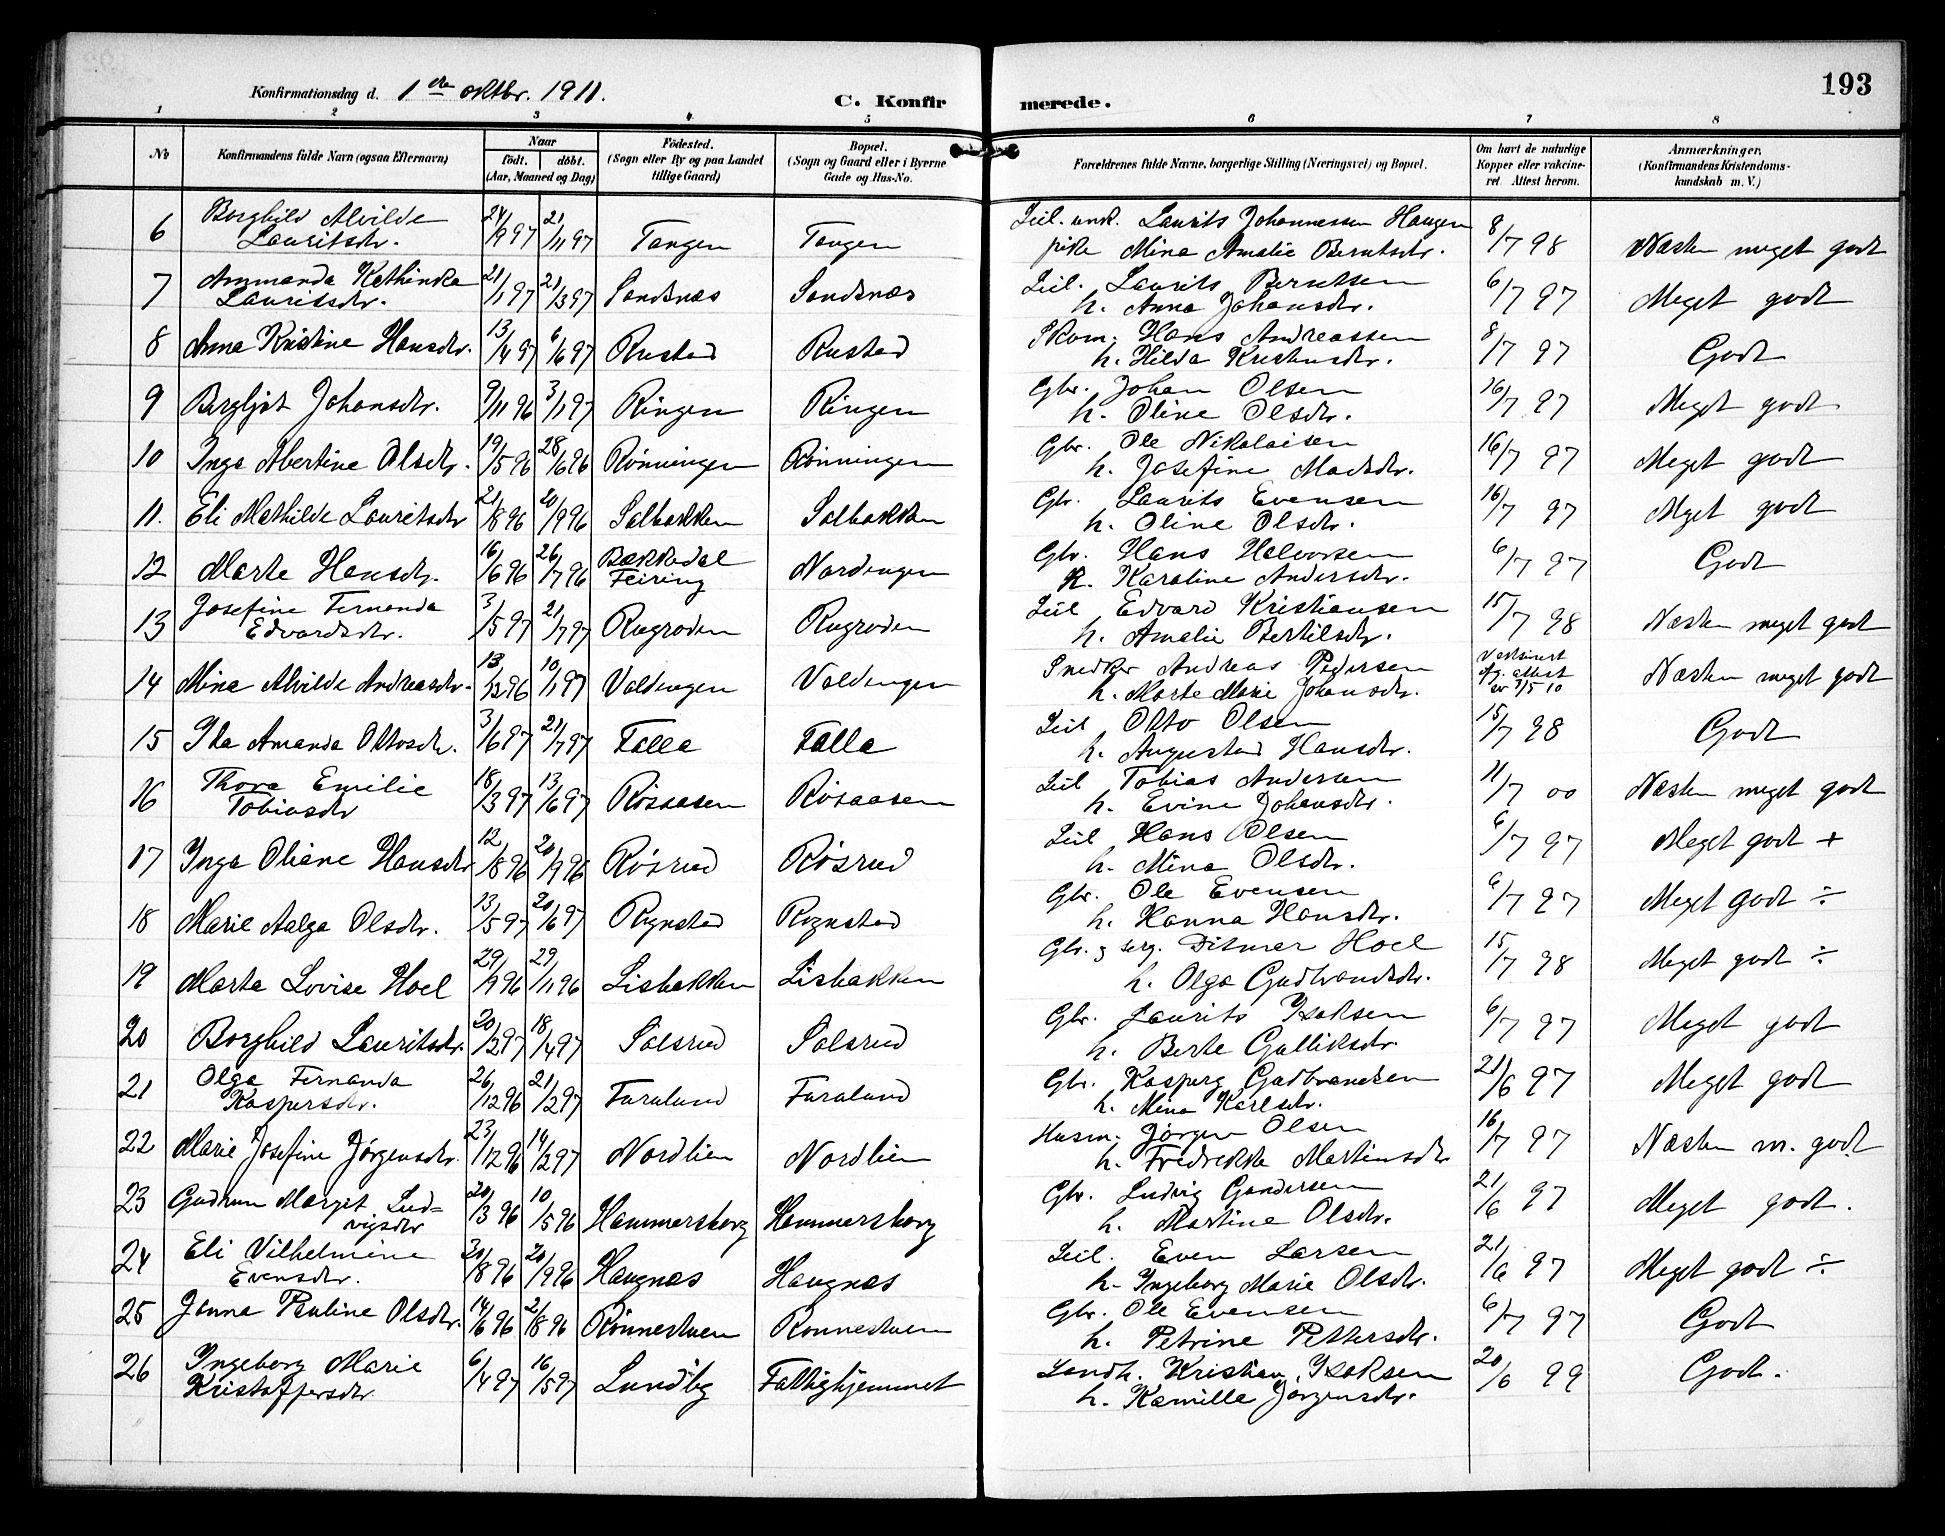 193
Konfirmationsdag d. 1ste oktbr. 1911.
C. Konfirmerede.
1 2 3 4 5 6 7 8
No
Konfirmandens fulde Navn (ogsaa Efternavn)
Naar
födt. döbt.
(Aar, Maaned og Dag)
Födested.
(Sogn eller By og paa Landet
tillige Gaard)
Bopæl.
(Sogn og Gaard eller i Byerne
Gade og Hus-No.
Forældrenes fulde Navne, borgerlige Stilling (Næringsvei) og Bopæl.
Om havt de naturlige
Kopper eller vakcine-
ret. Attest herom.
Anmærkninger.
(Konfirmandens Kristendoms-
kundskab m. V.)
6 Borghild Alvilde Lauritsdtr. 24/9 97 21/11 97 Tangen Tangen Leil. unk. Laurits Johannessen Haugen
pike Mina Amalie Berntsdtr. 8/7 98 Næsten meget godt
7 Ammanda Kathinka Lauritsdtr. 21/1 97 21/3 97 Sandsnæs Sandsnæs Leil. Laurits Berntsen
h. Anna Johansdtr. 6/7 97 Meget godt
8 Anna Kristine Hansdtr. 13/4 97 6/6 97 Rustad Rustad Skom. Hans Andreassen
h. Hilda Kristensdtr. 8/7 97 Godt
9 Bergljot Johansdtr. 9/11 96 3/1 97 Ringen Ringen Gbr. Johan Olsen
h. Oline Olsdtr. 16/7 97 Meget godt
10 Inga Albertine Olsdtr. 19/5 96 28/6 96 Rönningen Rönningen Gbr. Ole Nikolaisen
h. Josefine Madsdtr. 16/7 97 Meget godt
11. Eli Mathilde Lauritsdtr 21/8 96 20/9 96 Solbakken Solbakken Gbr. Laurits Evensen
h. Oline Olsdtr. 16/7 97 Meget godt
12 Marte Hansdtr. 16/6 96 26/7 96 Bækkedal Feiring Nordengen Gbr. Hans Halvorsen
h. Karoline Andersdtr. 6/7 97 Godt
13 Josefine Fernanda Edvardsdtr. 3/5 97 21/7 97 Rugroden Rugroden Leil Edvard Kristiansen
h. Amalie Bertilsdtr. 15/7 98 Næsten meget godt
14 Mina Alvilde Andreasdtr. 13/12 96 10/1 97 Valdengen Valdengen Snedker Andreas Pedersen
h. Marte Marie Johansdtr. Vaksinert
flg. attest
av 7/5 10 Næsten meget godt
15 Ida Amanda Ottosdtr. 3/6 97 21/7 97 Falla Falla Leil Otto Olsen
h. Augusta Hansdtr. 15/7 98 Godt
16 Thora Emilie Tobiasdtr 18/3 97 13/6 97 Rösaasen Rösaasen Leil Tobias Andersen
h. Evine Johansdtr. 11/7 00 Næsten meget godt
17 Inga Oliane Hansdtr 12/8 96 20/9 96 Rösrud Rösrud Leil Hans Olsen
h. Mina Olsdtr. 6/7 97 Meget godt +
18 Marie Aalga Olsdtr. 13/5 97 20/6 97 Rognstad Rognstad Gbr. Ole Evensen
h. Hanna Hansdtr. 6/7 97 Meget godt ÷
19 Marta Lovise Hoel 29/9 96 29/11 96 Lisbakken Lisbakken Gbr. og serg. Ditmar Hoel
h. Olga Gudbrandsdtr. 15/7 98 Meget godt ÷
20 Borghild Lauritsdtr. 20/2 97 18/4 97 Solsrud Solsrud Gbr. Laurits Isaksen
h. Berte Gulliksdtr. 6/7 97 Meget godt
21 Olga Fernanda Kaspersdtr. 26/12 96 21/2 97 Furulund Furulund Gbr. Kasper Gudbrandsen
h. Mina Karlsdtr. 21/6 97 Meget godt
22 Marie Josefine Jörgensdtr. 23/12 96 14/2 97 Nordlien Nordlien Husm. Jörgen Olsen
h. Fredrikke Martinsdtr 16/7 97 Næsten m. godt
23 Gudrun Margit Lud=
vigsdtr 20/3 96 10/5 96 Hammersborg Hammersborg Gbr. Ludvig Gundersen
h. Martine Olsdtr. 21/6 97 Meget godt.
24 Eli Vilhelmine Evensdtr. 20/8 96 20/9 96 Haugnæs Haugnæs Leil. Even Larsen
h. Ingeborg Marie Olsdtr. 21/6 97 Meget godt ÷
25 Janna Pauline Olsdtr. 14/6 96 2/8 96 Rönnestuen Rönnestuen Gbr. Ole Evensen
h. Petrine Pettersdtr. 6/7 97 Godt
26 Ingeborg Marie Kristoffersdtr 6/4 97 16/5 97 Lundby Fattighjemmet Landh. Kristian Isaksen
h. Kamilla Jörgensdtr. 20/6 99 Godt.